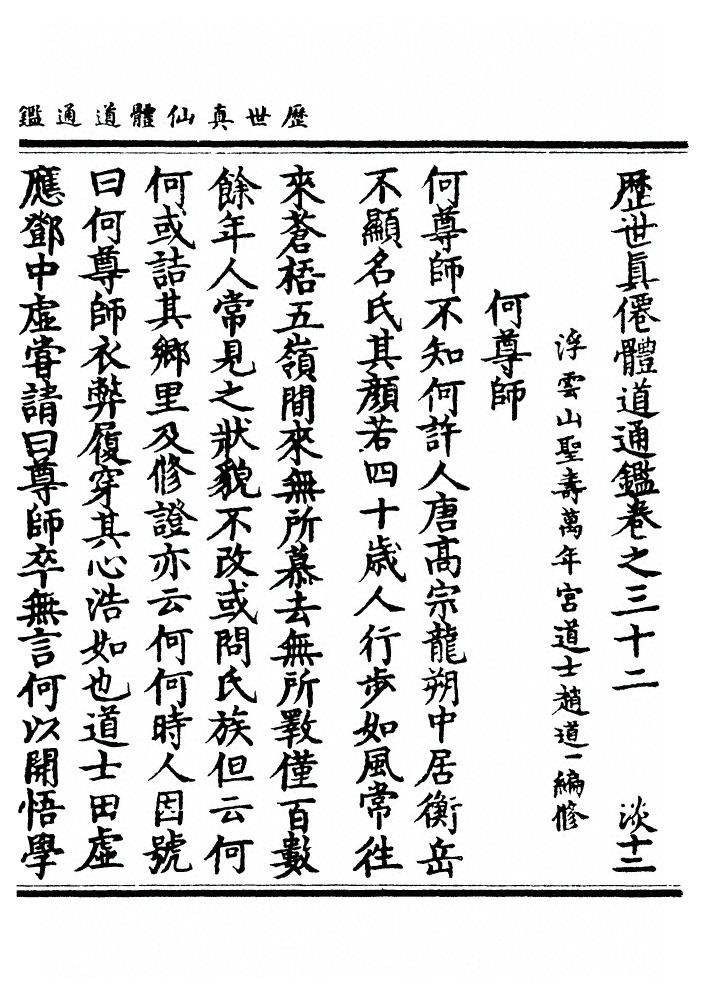 歷世真仙體道通鑑
歷世眞僊體道通鑑卷之三十二　淡十二
浮雲山聖壽萬年宮道士趙道一編修
何尊師
何尊師不知何許人唐高宗龍朔中居衡岳
不顯名氏其顏若四十歲人行步如風常往
來蒼梧五嶺間來無所慕去無所斁僅百數
餘年人常見之狀貌不改或問氏族但云何
何或詰其鄉里及修證亦云何何時人因號
曰何尊師衣弊履穿其心浩如也道士田虛
應鄧中虛甞請曰尊師卒無言何以開悟學